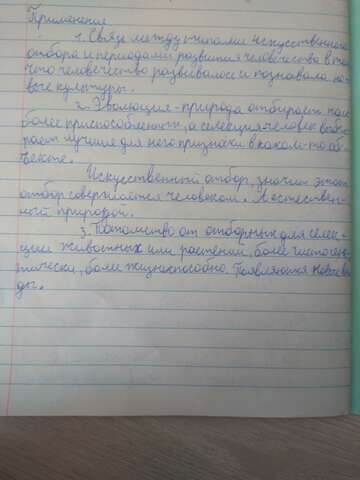 Применение
1. Связь между типами искусственного
отбора и периодами развития человечества в том
что человечество развивалось и познавала но-
вые культуры.
2. Эволюция - природа отбирает наи
более приспособленных, а селекция человек выби-
рает лучшие для него признаки в каком-то об-
ъекте.
Искусственный отбор, значит этот
отбор совершается человеком. А естествен-
ный природой.
3. Потомство от отборных для селек-
ции животных или растений, более чисто
тически, более жизнеспособно. Появляются новые ви
ды.